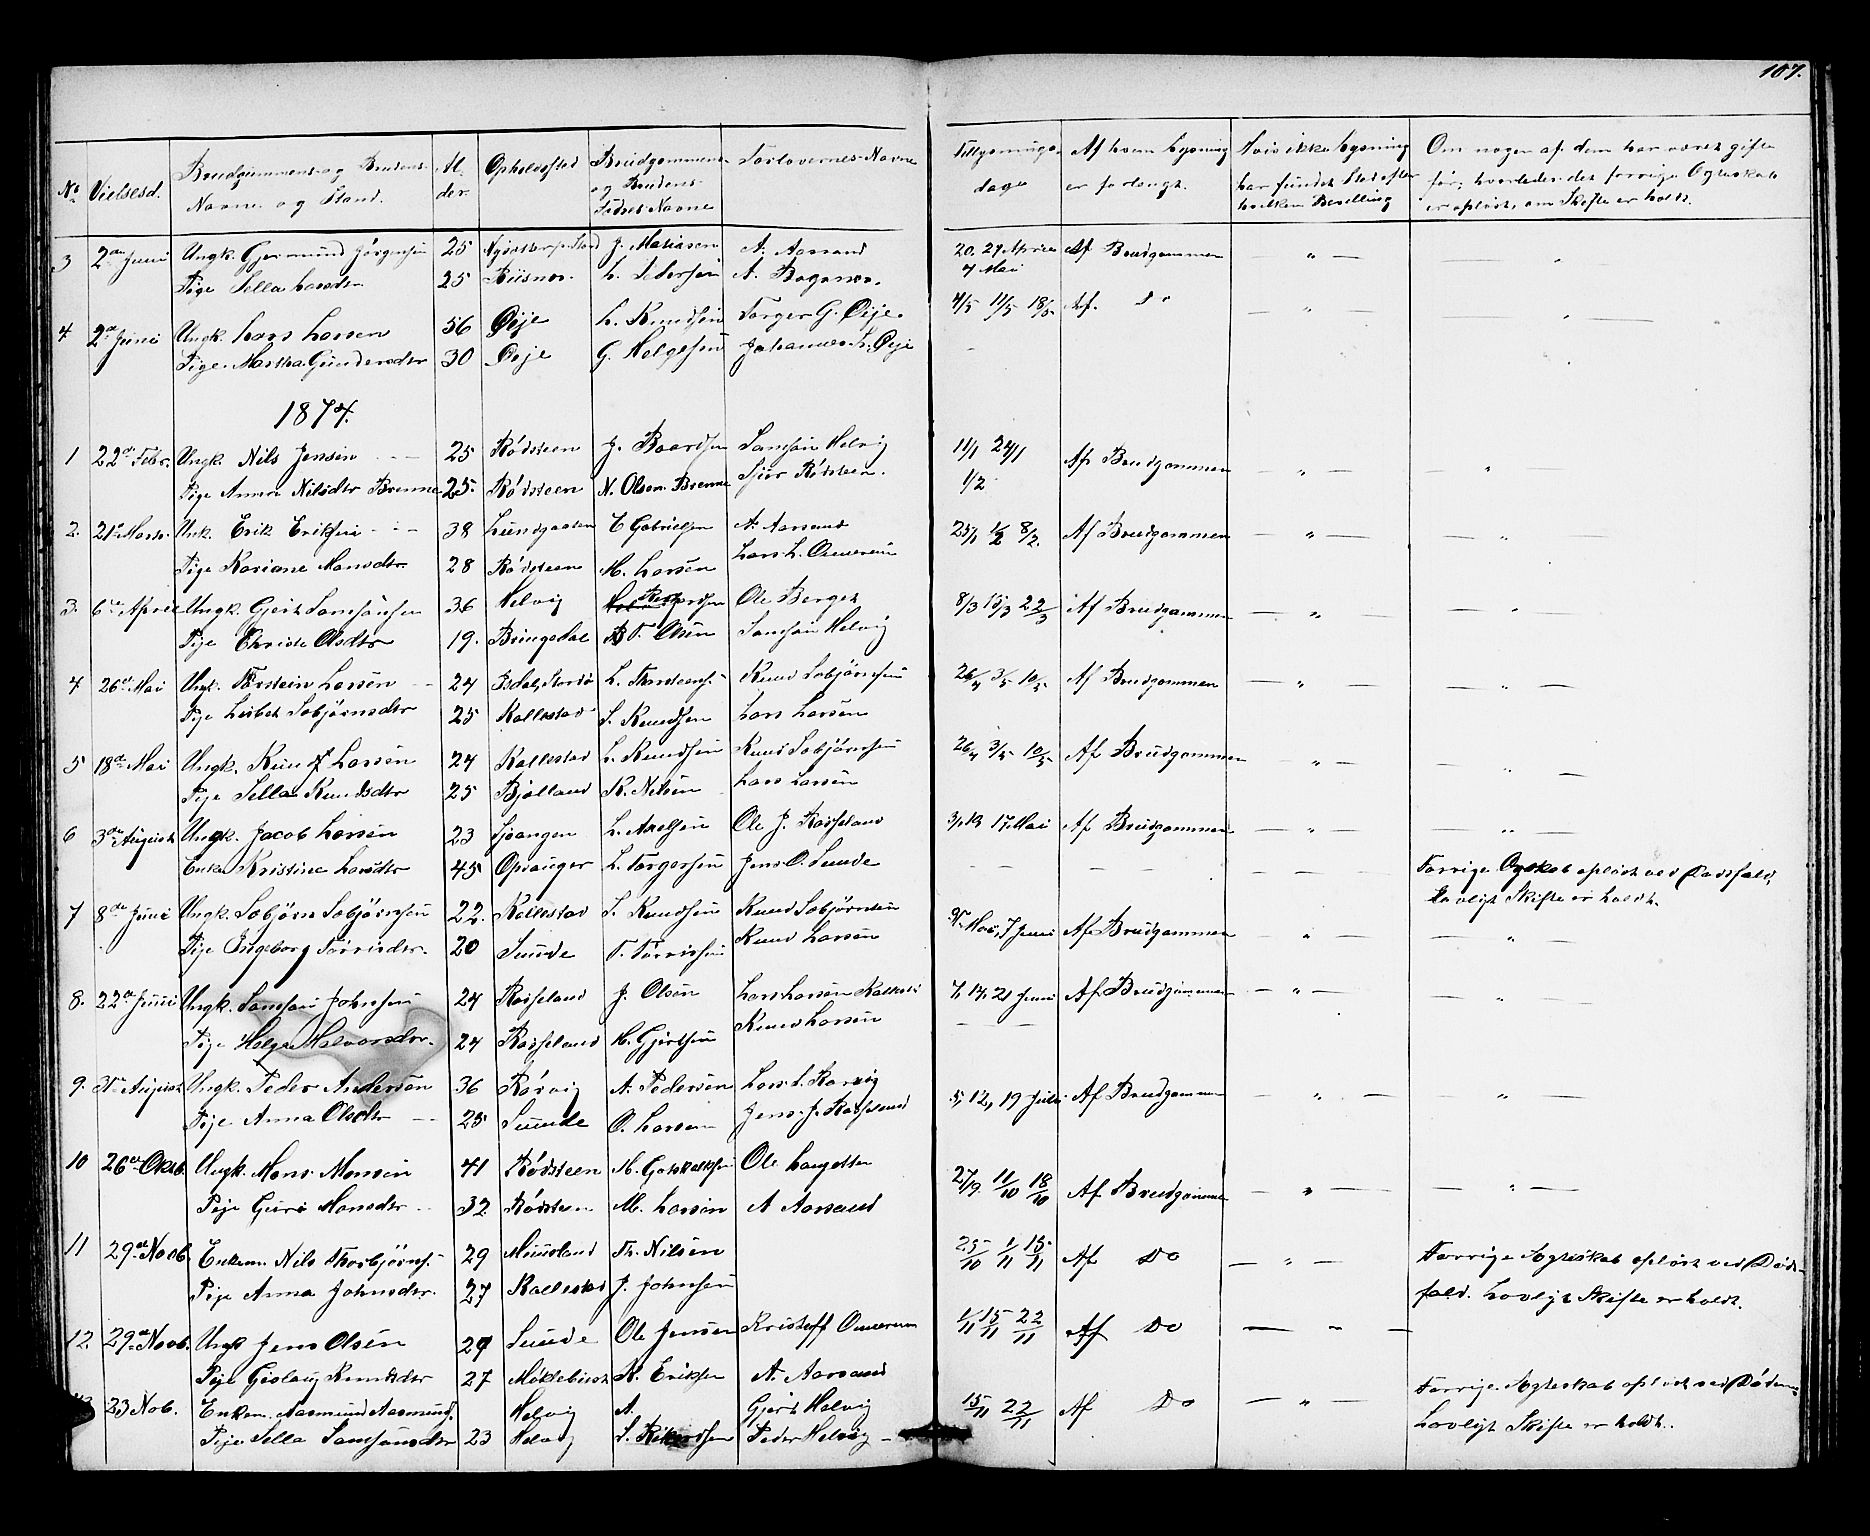 107.
No Vielsesd. Brudgummens og Brudens Navne og Stand. Alder. Opholdssted Brudgommens og Brudens Fødres Navne Forlovernes Navne Tillysnings dage Af hvem Lysning er forlangt. Hvis ikke Lysning har fundet Sted efter hvilken Bevilling Om nogen af dem har været gifte før; hvorledes det forrige Egteskab er opløst, om Skifte er holdt.
3 2den Juni Ungk. Gjermund Jørgensen 25 J. Matiasen A. Aarsand 20. 27 April 4 Mai Af Brudgommen — " —
Pige Sella Larsdtr 25 L. Pedersen A.
4 2den Juni Ungk. Lars Larsen 56 Øeje L. Knudsen Torger G. Øeje. 4/5 11/5 18/5 Af. Do — " —
Pige Martha Gundersdtr 30 Øeje G. Helgesen Johannes Øeje
1874.
1 22de Febr. Ungk. Nils Jensen 25 Rødsteen J. Baardsen Samson Helvig 11/1 24/1 1/2 Af Brudgommen — " —
Pige Anna Nilsdtr Brenne 25 Rødsteen N. Olsen Brenne Sjur Rødsteen.
2. 21 Marts. Unk. Erik Eriksen 38 E Gabrielsen A. Aarsand 25/1 1/2 8/2. Af Brudgommen — " —
Pige Kariane Monsdtr 28 Rødsteen M. Larsen Lars L. Omvereim
3. 6te April Ungk. Gjert Samsonsen 36 Helvig Ole Berget 8/3 15/3 22/3 Af Brudgommen — " —
Pige Christi Olsdtr 19. Bringedal T. Olsen Samson Helvig
4 26de Mai Ungk. Torstein Larsen 24 L. Thorsteens. Knud Sebjörnsen 26/4 3/5 10/5 Af Brudgommen — " —
Pige Lisbet Sebjørnsdtr 25 Kallestad S. Knudsen Lars Larsen
5 18de Mai Ungk. Knud Larsen 24 Kallestad L. Knudsen Knud Sebjörnsen 26/4 3/5 10/5 Af Brudgommen — " —
Pige Sella Knudsdtr 25 Bjelland K. Nilsen Lars Larsen
6 3die August Ungk. Jacob Larsen 23 L. Axelsen Ole J. Røsseland 3, 10, 17 Mai Af Brudgommen — " —
Enke Kristine Larsdtr 45 Opsanger L. Torgersen Jens O. Sunde Forrige Egskab opløst ved Dødsfald, Lovligt Skifte er holdt.
7 8de Juni Ungk. Sebjørn Sebjørnsen 22. Kallestad S. Knudsen Knud Sebjørnsen 31 Mai, 7 Juni Af Brudgommen — " —
Pige Ingeborg Torrisdtr. 20 Sunde T. Torrissen Knud Larsen
8. 22de Juni Ungk. Samson Johnsen 24 Røsseland J. Olsen Lars Larsen Kallestad 7, 14, 21 Juni Af Brudgommen — " —
Pige Helga Halvorsdtr. 24 Røsseland H. Gjertsen Knud Larsen
9. 31te August Ungk. Peder Andersen 36 Rørvig A. Pedersen Lars A. Rørvig 5, 12, 19 Juli Af Brudgommen — " —
Pige Anna Olsdtr 25 Sunde O. Larsen Jens J. Røsseland
10 26de Oktb. Ungk. Mons Monsen 41 Rødsteen M. Gotskalksen Ole Langetten 27/9. 11/10 18/10 Af Brudgommen — " —
Pige Guri Monsdtr 32 Rødsteen M. Larsen A Aarsand
11 29de Novb. Enkem. Nils Thorbjørns. 29 Muusland Th. Nilsen 25/10 1/11 15/11 Af Do — " — Forrige Ægteskab opløst ved Døds-
Pige Anna Johnsdtr. 27 Kallestad J. Johnsen fald. Lovligt Skifte er holdt.
12. 29de Novb. Ungk Jens Olsen 29 Sunde Ole Jensen Kristoff Omvereim 1/11 15/11 22/11 Af Do — " —
Pige Gislaug Knudsdtr 27 Møklebust K. Eriksen A. Aarsand
23 Nob. Enkem. Aasmund Aasmunds. Helvig A. Gjert Helvig 15/11 22/11 Af Do — " — Forrige Ægteskab opløst ved Døden
Pige Sella Samsonsdtr 23 Helvig S. Rikardsen Peder Helvig Lovligt Skifte er holdt.